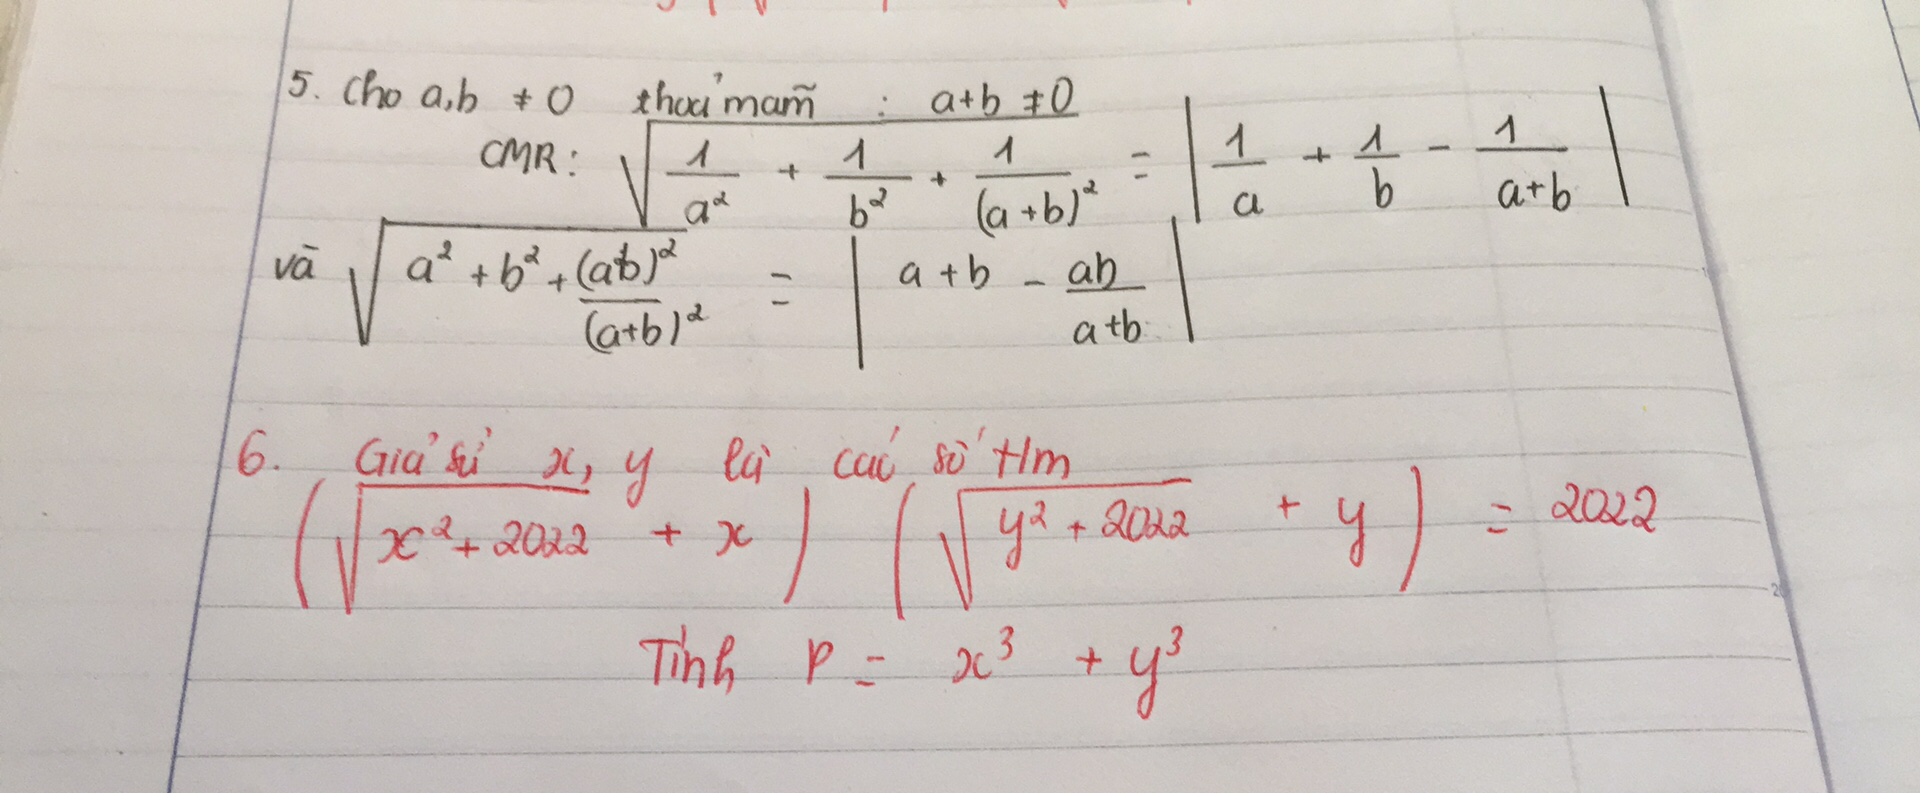 5. Cho a,b ≠ 0 thoả mãm : a+b ≠ 0
CMR: √(1/a² + 1/b² + 1/(a+b)²) = |1/a + 1/b - 1/(a+b)|
và √(a² + b² + (ab)²/(a+b)²) = |a + b - ab/(a+b)|
6. Giả sử x, y là các số t/m
(√(x² + 2022) + x) (√(y² + 2022) + y) = 2022
Tính P = x³ + y³